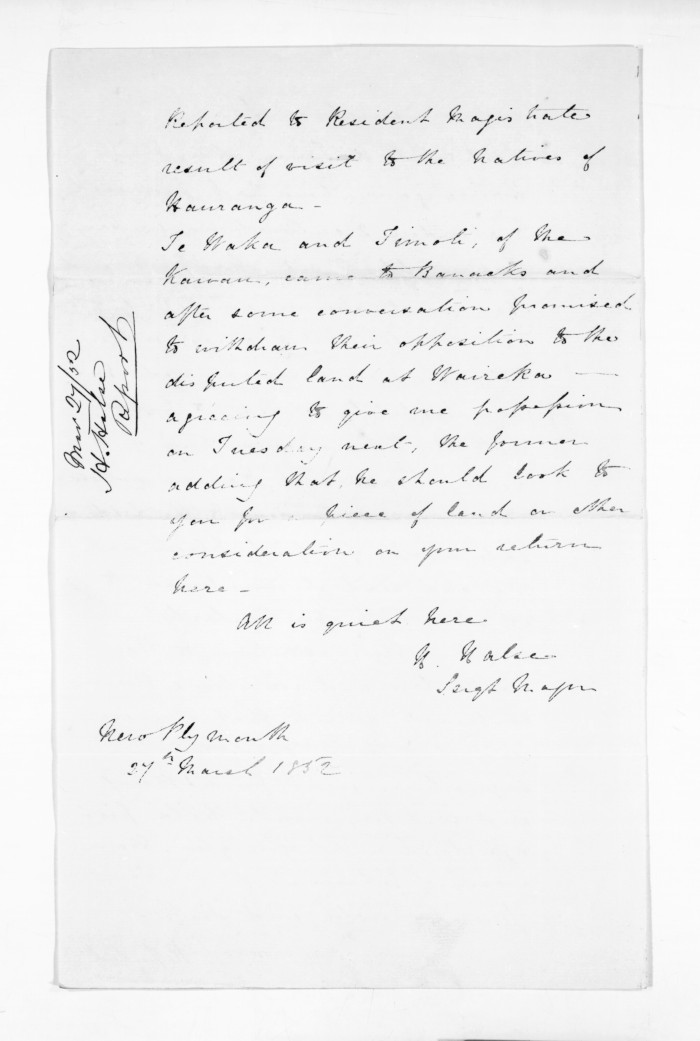 Reported to Resident Magistrate
result of visit to the Natives of
Hauranga -
Te Waka and Timoti, of the
Kawau, came to Barracks and
after some conversation promised
to withdraw their opposition to the
disputed land at Waireka —
agreeing to give me possession
on Tuesday next, the former
adding that he should look to
you for a piece of land or other
consideration on your return
here -
All is quiet here
H. Halse
Sergt Major
New Plymouth
27th March 1852
Mar 27/52
H. Halse
Report